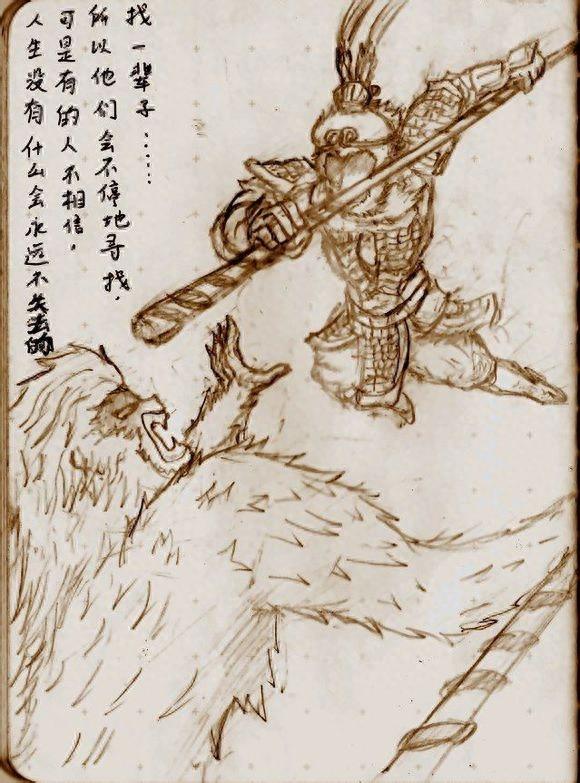 人生没有什么会永远不失去的
可是有的人不相信，
所以他们会不停地寻找，
找一辈子……